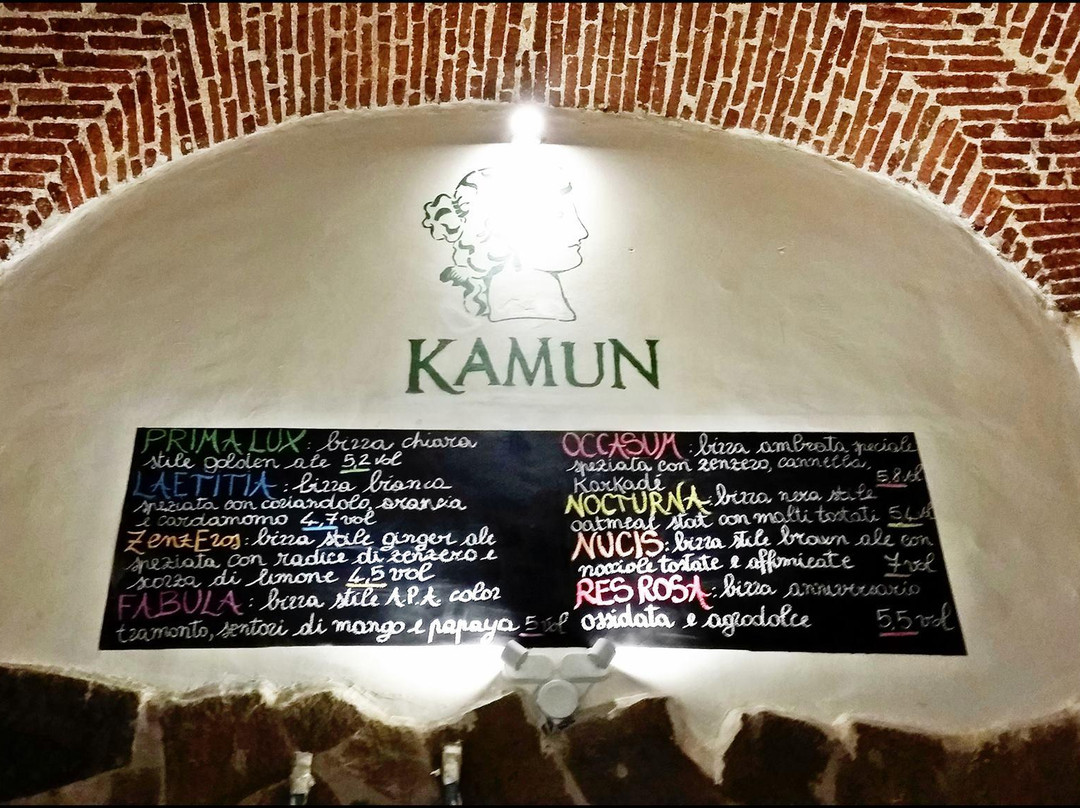 KAMUN
PRIMA LUX: birra chiara
stile golden ale 5,2 vol
LAETITIA: birra bianca
speziata con coriandolo, arancia
e cardamomo 4,7 vol
ZenzEros: birra stile ginger ale
speziata con radice di zenzero e
scorza di limone 4,5 vol
FABULA: birra stile A.P.A. color
tramonto, sentori di mango e papaya 5 vol
OCCASUM: birra ambrata speciale
speziata con zenzero, cannella,
Karkadé 5,8 vol
NOCTURNA: birra nera stile
oatmeal stat con malti tostati
NUCIS: birra stile brown ale con
nocciole tostate e affumicate 7 vol
RES ROSA: birra anniversario
ossidata e agrodolce 5,5 vol